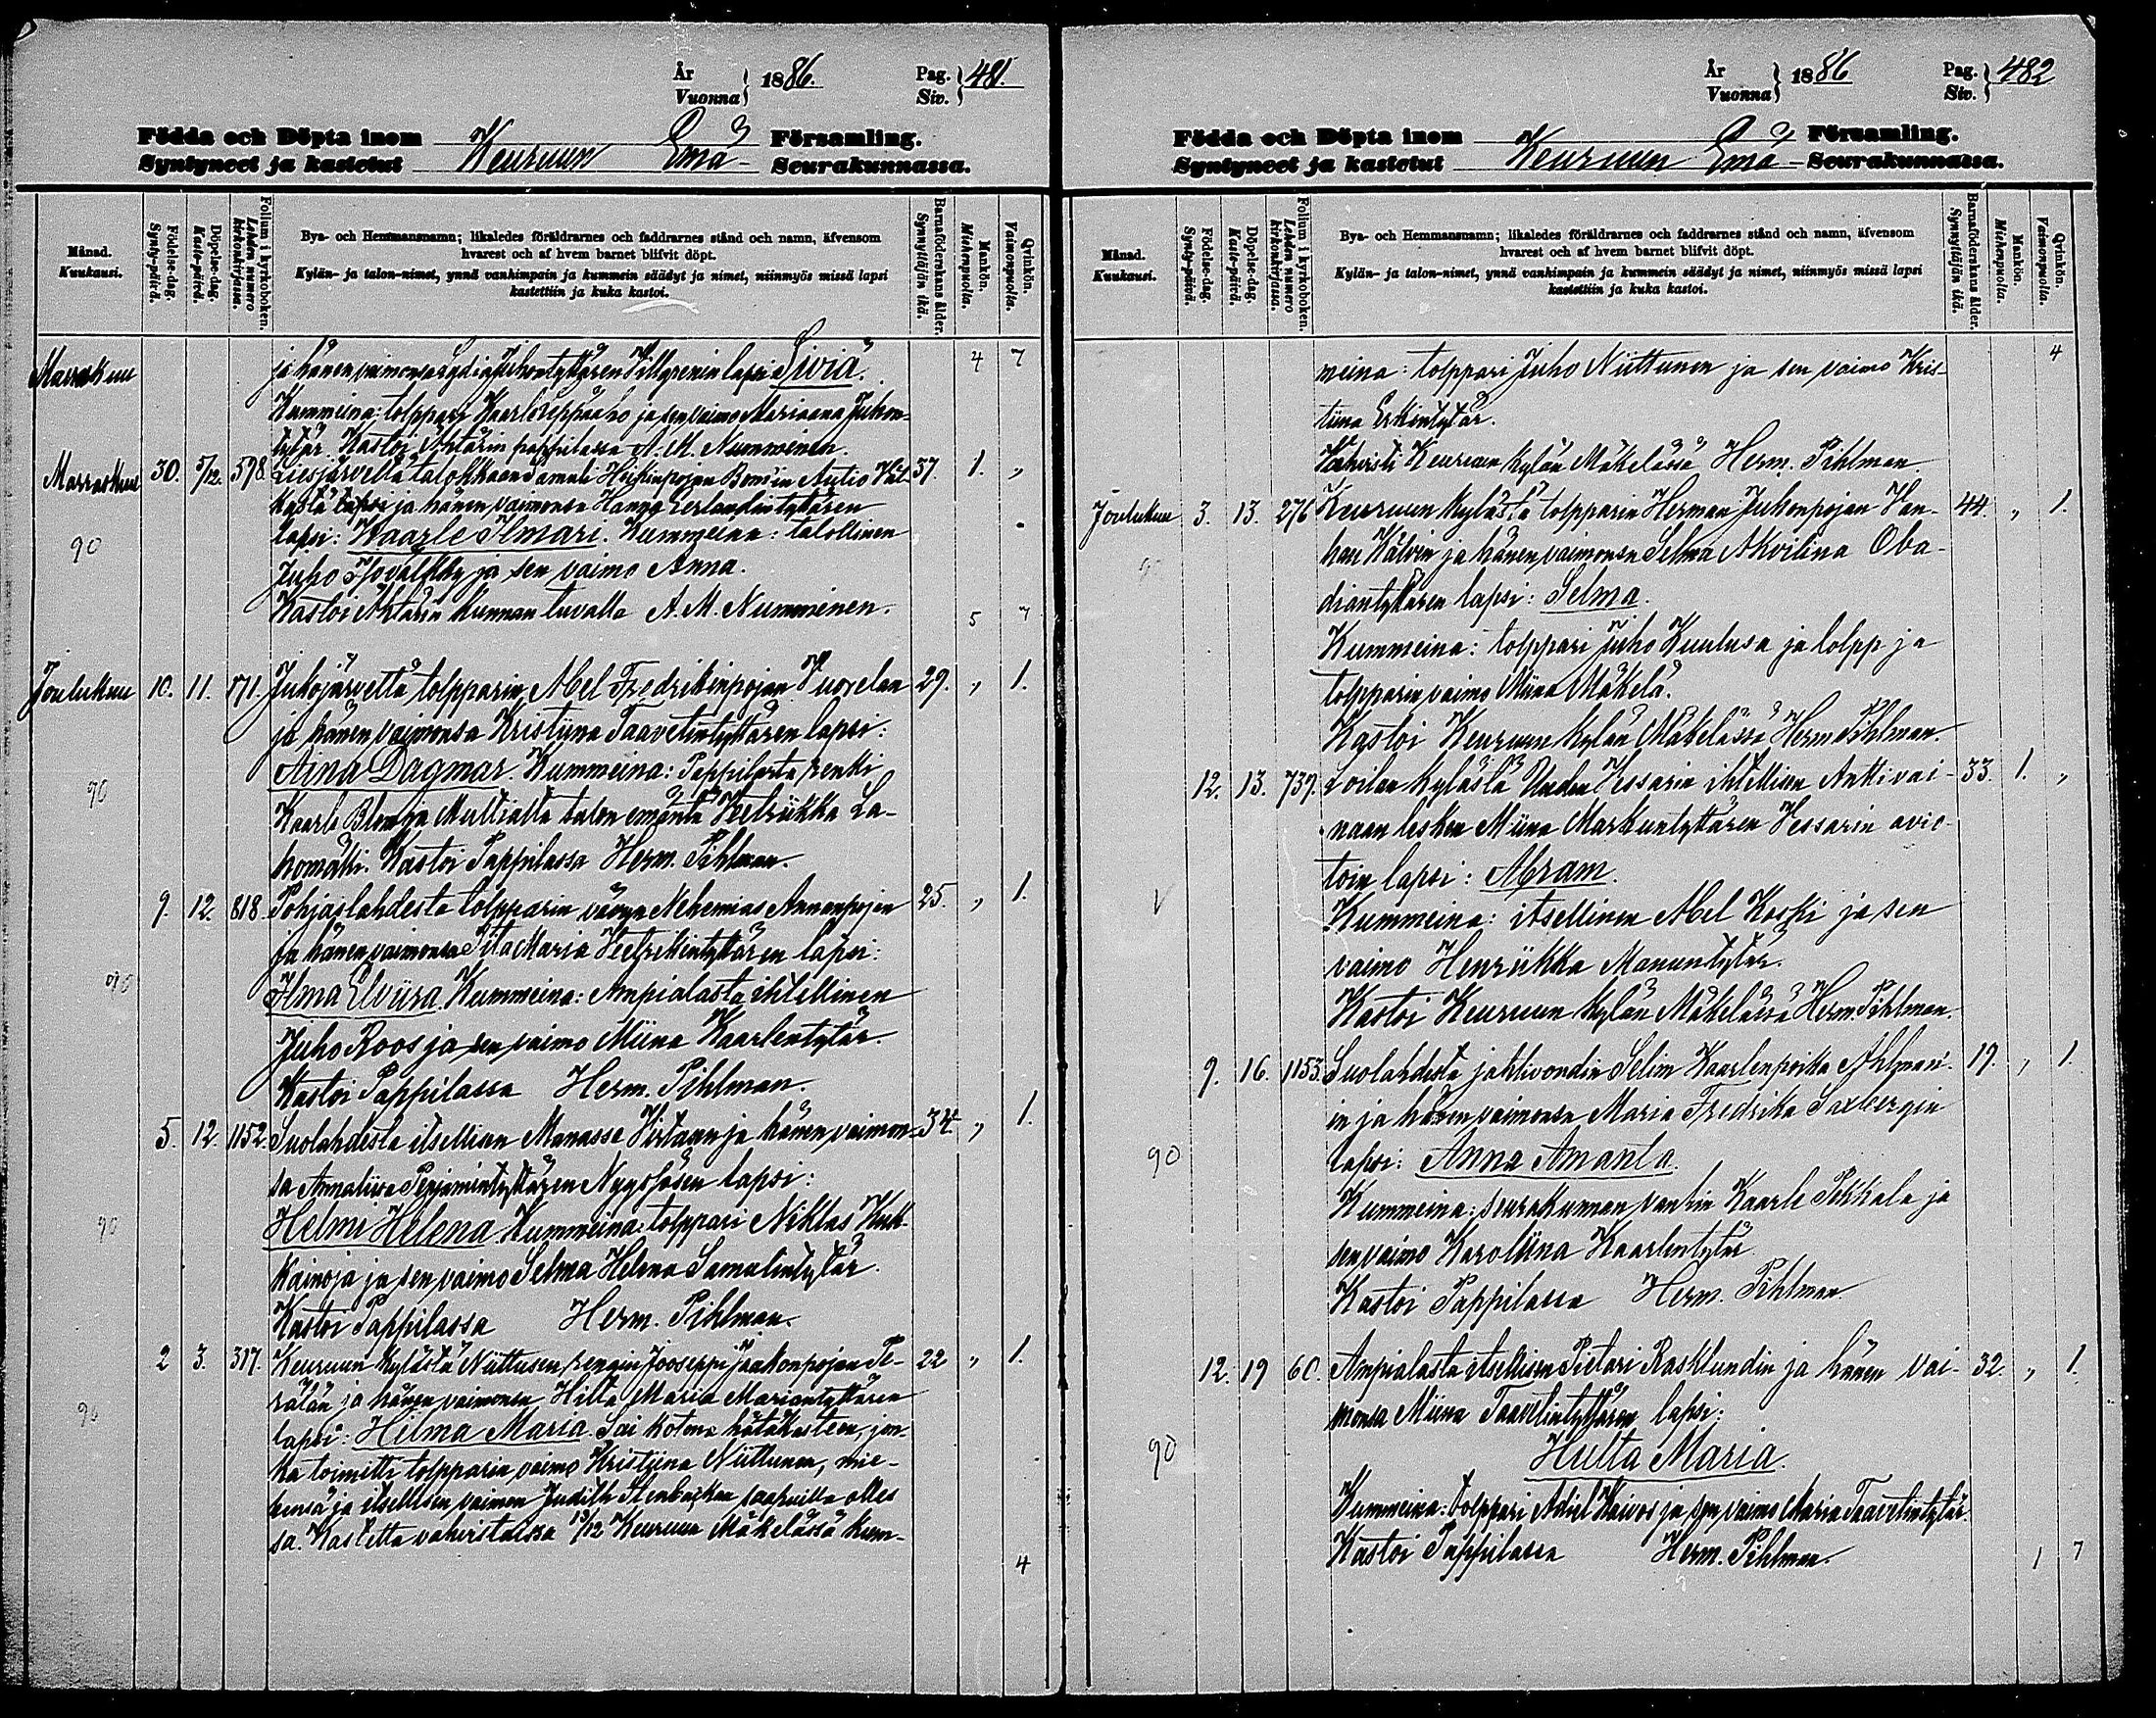 År
Vuonna } 1886. Pag.
Siv. } 481.
Födda och Döpta inom
Syntyneet ja kastetut Keuruun Emä- Församling.
Seurakunnassa.
Månad.
Kuukausi.
Födelse-dag.
Synty-päivä.
Döpelse-dag.
Kaste-päivä.
Folium i kyrkoboken.
Lehden numero
kirkonkirjassa.
Bya- och Hemmansnamn; likaledes föräldrarnes och faddrarnes stånd och namn, äfvensom
hvarest och af hvem barnet blifvit döpt.
Kylän- ja talon-nimet, ynnä vanhimpain ja kummein säädyt ja nimet, niinmyös missä lapsi
kastettiin ja kuka kastoi.
Barnaföderskans ålder.
Synnyttäjän ikä.
Mankön.
Miehenpuolia.
Qvinkön.
Vaimonpuolia.
Marraskuu ja hänen vaimonsa Lydia Juhontyttären lapsi Siviä. 4 7
Kummeina: tolppari Kaarlo ja sen vaimo Mariaana Juhon-
tytär. Kastoi Ähtärin pappilassa A. M. Numminen.
Marraskuu 30. 5/12. 598. talokkaan Samuli Heikinpojan 37. 1. "
ja hänen vaimonsa Hanna Eerlandin tyttären
lapsi: Kaarle Ilmari. Kummeina: talollinen
90
Juho ja sen vaimo Anna.
Kastoi Ähtärin kunnan tuvalla A. M. Numminen. 5 7
Joulukuu 10. 11. 171. Jukojärveltä tolpparin Abel Fredrikinpojan Vuorelan 29. " 1.
ja hänen vaimonsa Kristiina Taavetintyttären lapsi:
Aina Dagmar. Kummeina: Pappilasta renki
90
Kaarle Blom ja Multialta talon emäntä Vetriikka La-
homäki. Kastoi Pappilassa Herm. Pihlman.
9. 12. 818. Pohjaslahdesta tolpparin vävyn Nehemias Annanpojan 25. " 1.
ja hänen vaimonsa Iita Maria Vetrikintyttären lapsi:
90
Ilma Elviira. Kummeina: Ampialasta ihtellinen
Juho Roos ja sen vaimo Miina Kaarlentytär.
Kastoi Pappilassa Herm. Pihlman.
5. 12. 1152. Suolahdesta itsellisen Manasse Virtasen ja hänen vaimon- 34. " 1.
sa Annaliisa Penjamintyttären lapsi:
90
Helmi Helena. Kummeina: tolppari Niklas Kuk-
kainoja ja sen vaimo Selma Helena Samulintytär.
Kastoi Pappilassa Herm. Pihlman.
2 3. 317. Keuruun kylästä Niittusen rengin Jooseppi Jaakonpojan Pe- 22 " 1.
rälän ja hänen vaimonsa Hilta Maria Mariantyttären
90
lapsi: Hilma Maria. Sai kotona hätäkasteen, jon-
ka toimitti tolpparin vaimo Kristiina Niittunen, mie-
hensä ja itsellisen vaimon Judith Stenbackan saapuilla olles-
sa. Kastetta vahvistaissa 13/12 Keuruun Mäkelässä kum-
4
År
Vuonna } 1886 Pag.
Siv. } 482
Födda och Döpta inom
Syntyneet ja kastetut Keuruun Emä- Församling.
Seurakunnassa.
Månad.
Kuukausi.
Födelse-dag.
Synty-päivä.
Döpelse-dag.
Kaste-päivä.
Folium i kyrkoboken.
Lehden numero
kirkonkirjassa.
Bya- och Hemmansnamn; likaledes föräldrarnes och faddrarnes stånd och namn, äfvensom
hvarest och af hvem barnet blifvit döpt.
Kylän- ja talon-nimet, ynnä vanhimpain ja kummein säädyt ja nimet, niinmyös missä lapsi
kastettiin ja kuka kastoi.
Barnaföderskans ålder.
Synnyttäjän ikä.
Mankön.
Miehenpuolia.
Qvinkön.
Vaimonpuolia.
meina: tolppari Juho Niittunen ja sen vaimo Kris- 4
tiina Erkintytär.
Vahvisti Keuruun kylän Mäkelässä Herm. Pihlman.
Joulukuu 3. 13. 276 Keuruun kylästä tolpparin Herman Juhonpojan Van- 44. " 1.
han Kälvin ja hänen vaimonsa Selma Akvilina Oba-
diantyttären lapsi: Selma.
Kummeina: tolppari Juho Kuulusa ja tolpp ja
tolpparin vaimo Miina Mäkelä.
Kastoi Keuruun kylän Mäkelässä Herm. Pihlman.
12. 13. 737. Loilan kylästä Uuden Vessarin ihtellisen Antti vai- 33. 1. "
naan lesken Miina Markuntyttären Vessarin avio-
toin lapsi: Abram.
V
Kummeina: itsellinen Abel Koski ja sen
vaimo Henriikka Manuntytär.
Kastoi Keuruun kylän Mäkelässä Herm. Pihlman.
9. 16. 1153. Suolahdesta jahtivoudin Selim Kaarlenpoika Ahlman- 19. " 1.
in ja hänen vaimonsa Maria Fredrika Saxbergin
90
lapsi: Anna Amanta.
Kummeina: seurakunnan vanhin Kaarle Pekkala ja
sen vaimo Karoliina Kaarlentytär.
Kastoi Pappilassa Herm. Pihlman.
12. 19 60. Ampialasta itsellisen Pietari Rasklundin ja hänen vai- 32. " 1.
monsa Miina Taavetintyttären lapsi:
90
Hulta Maria.
Kummeina: tolppari Adiel Kaivos ja sen vaimo Maria Taavetintytär.
Kastoi Pappilassa Herm. Pihlman. 1 7